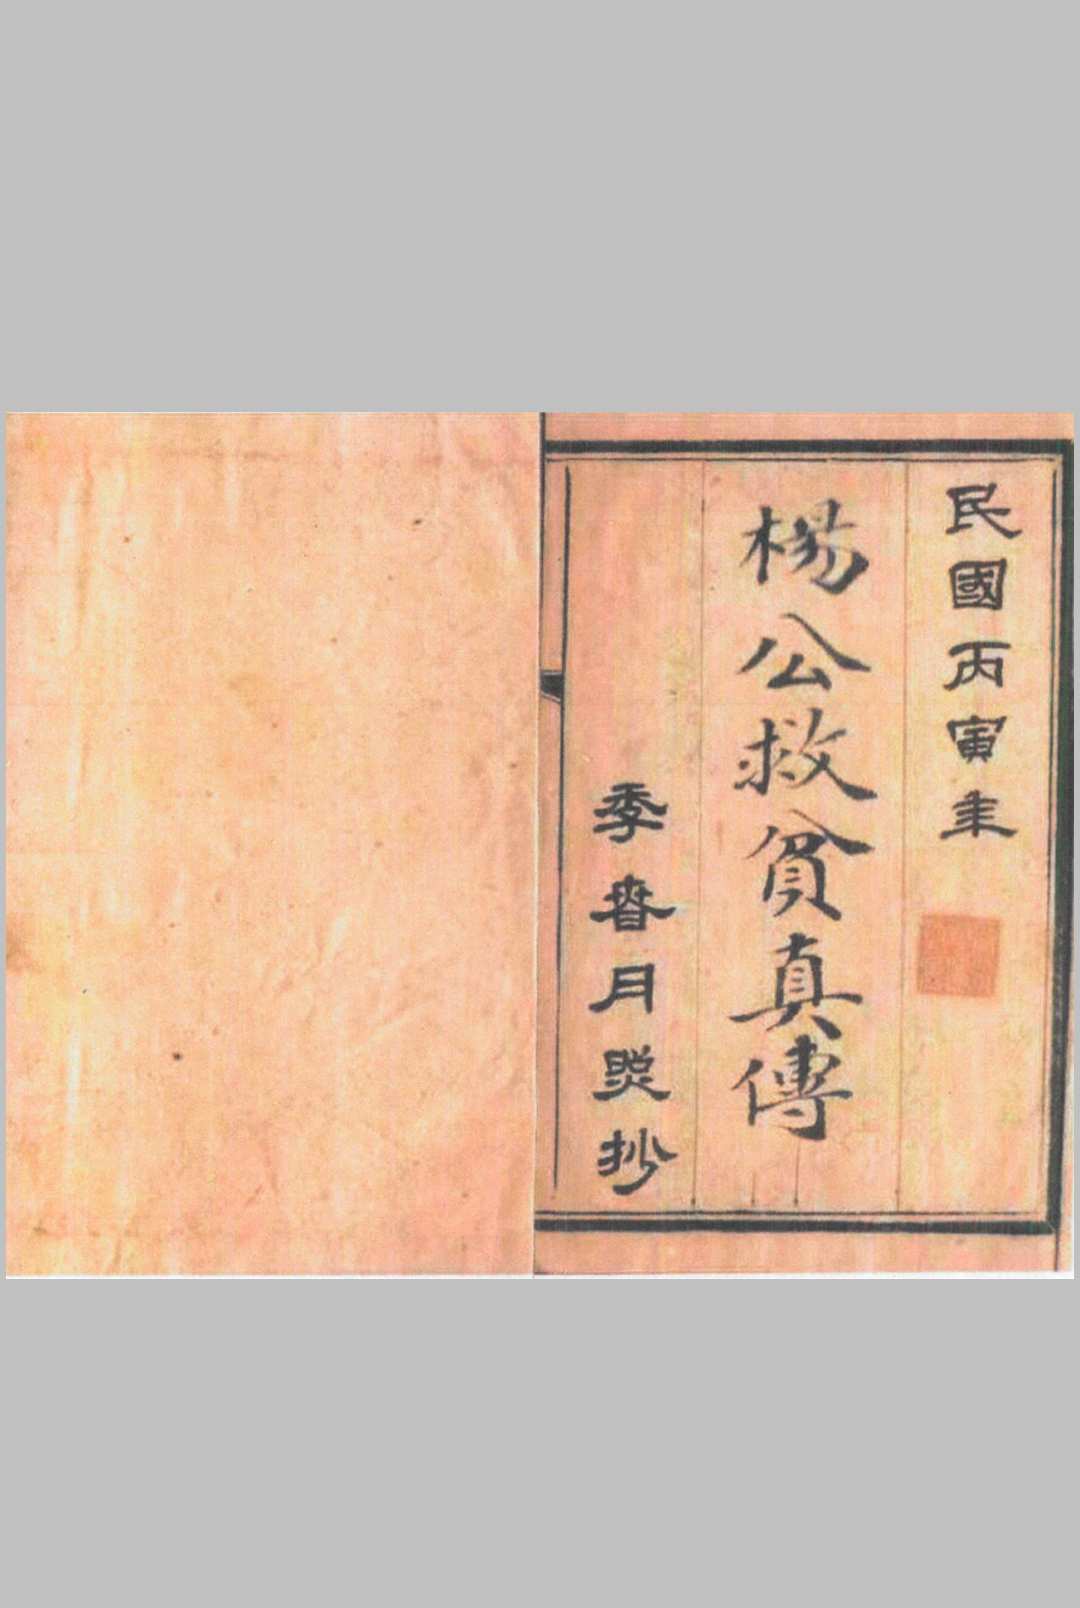 民國丙寅年
楊公救貧真傳
季春月照抄